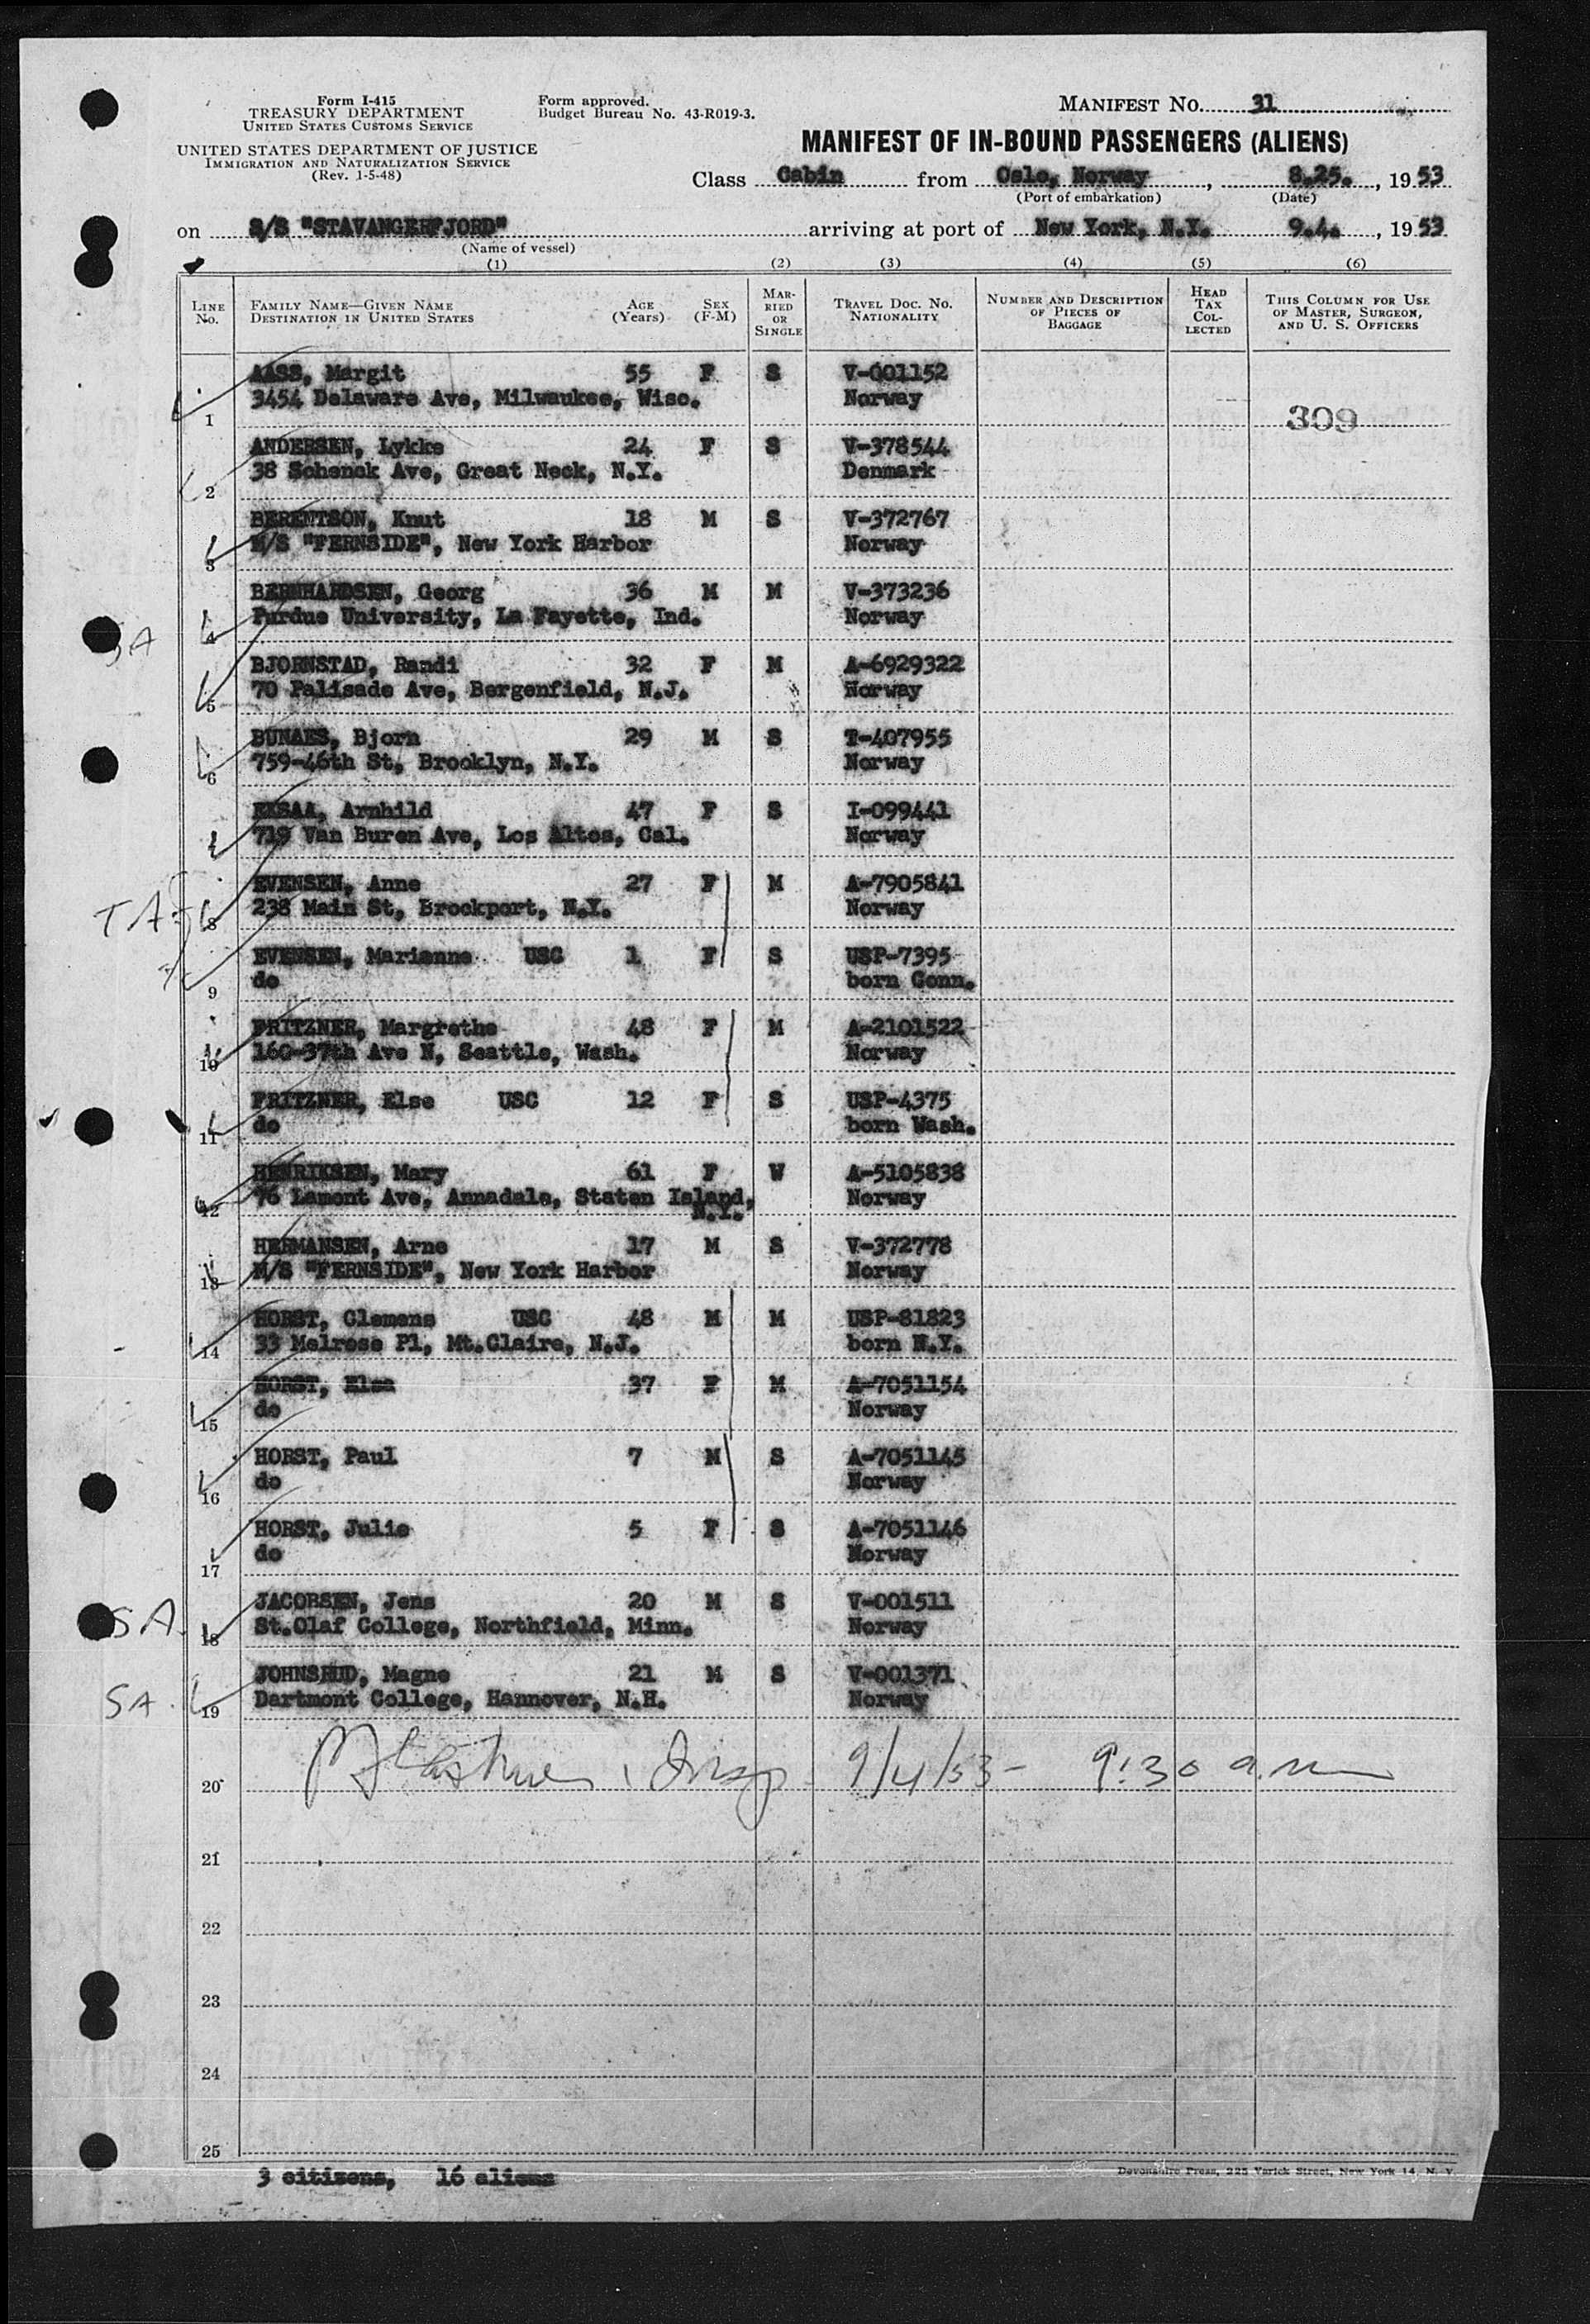 Form I-415
TREASURY DEPARTMENT
UNITED STATES CUSTOMS SERVICE
UNITED STATES DEPARTMENT OF JUSTICE
IMMIGRATION AND NATURALIZATION SERVICE
(Rev. 1-5-48)
Form approved.
Budget Bureau No. 43-R019-3.
MANIFEST NO. 31
MANIFEST OF IN-BOUND PASSENGERS (ALIENS)
Class Cabin from Oslo, Norway, 8.25., 1953
(Port of embarkation) (Date)
on S/S "STAVANGERFJORD" arriving at port of New York, N.Y. 9.4., 1953
(Name of vessel)
(1) (2) (3) (4) (5) (6)
LINE NO. FAMILY NAME—GIVEN NAME DESTINATION IN UNITED STATES AGE (YEARS) SEX (F-M) MARRIED OR SINGLE TRAVEL DOC. NO. NATIONALITY NUMBER AND DESCRIPTION OF PIECES OF BAGGAGE HEAD TAX COLLECTED THIS COLUMN FOR USE OF MASTER, SURGEON, AND U. S. OFFICERS
AASS, Margit 55 F S V-001152
1 3454 Delaware Ave, Milwaukee, Wisc. Norway 309
ANDERSEN, Lykke 24 F S V-378544
2 38 Schenck Ave, Great Neck, N.Y. Denmark
BERENTSON, Knut 18 M S V-372767
3 M/S "FERNSIDE", New York Harbor Norway
BERNHARDSEN, Georg 36 M M V-373236
SA 4 Purdue University, La Fayette, Ind. Norway
BJORNSTAD, Randi 32 F M A-6929322
5 70 Palisade Ave, Bergenfield, N.J. Norway
BUNAES, Bjorn 29 M S T-407955
6 759-46th St, Brooklyn, N.Y. Norway
EKSAA, Arnhild 47 F S I-099441
7 719 Van Buren Ave, Los Altos, Cal. Norway
EVENSEN, Anne 27 F M A-7905841
8 238 Main St, Brockport, N.Y. Norway
EVENSEN, Marianne USC 1 F S USP-7395
9 do born Conn.
FRITZNER, Margrethe 48 F M A-2101522
10 160-37th Ave N, Seattle, Wash. Norway
FRITZNER, Else USC 12 F S USP-4375
11 do born Wash.
HENRIKSEN, Mary 61 F W A-5105838
12 76 Lamont Ave, Annadale, Staten Island, N.Y. Norway
HERMANSEN, Arne 17 M S V-372778
13 M/S "FERNSIDE", New York Harbor Norway
HORST, Clemens USC 48 M M USP-81823
14 33 Melrose Pl, Mt.Claire, N.J. born N.Y.
HORST, Elsa 37 F M A-7051154
15 do Norway
HORST, Paul 7 M S A-7051145
16 do Norway
HORST, Julie 5 F S A-7051146
17 do Norway
JACOBSEN, Jens 20 M S V-001511
SA. 18 St.Olaf College, Northfield, Minn. Norway
JOHNSRUD, Magne 21 M S V-001371
SA. 19 Dartmont College, Hannover, N.H. Norway
20 Insp 9/4/53- 9:30 a.m
21
22
23
24
25
3 citizens, 16 aliens
Devonshire Press, 225 Varick Street, New York 14, N. Y.